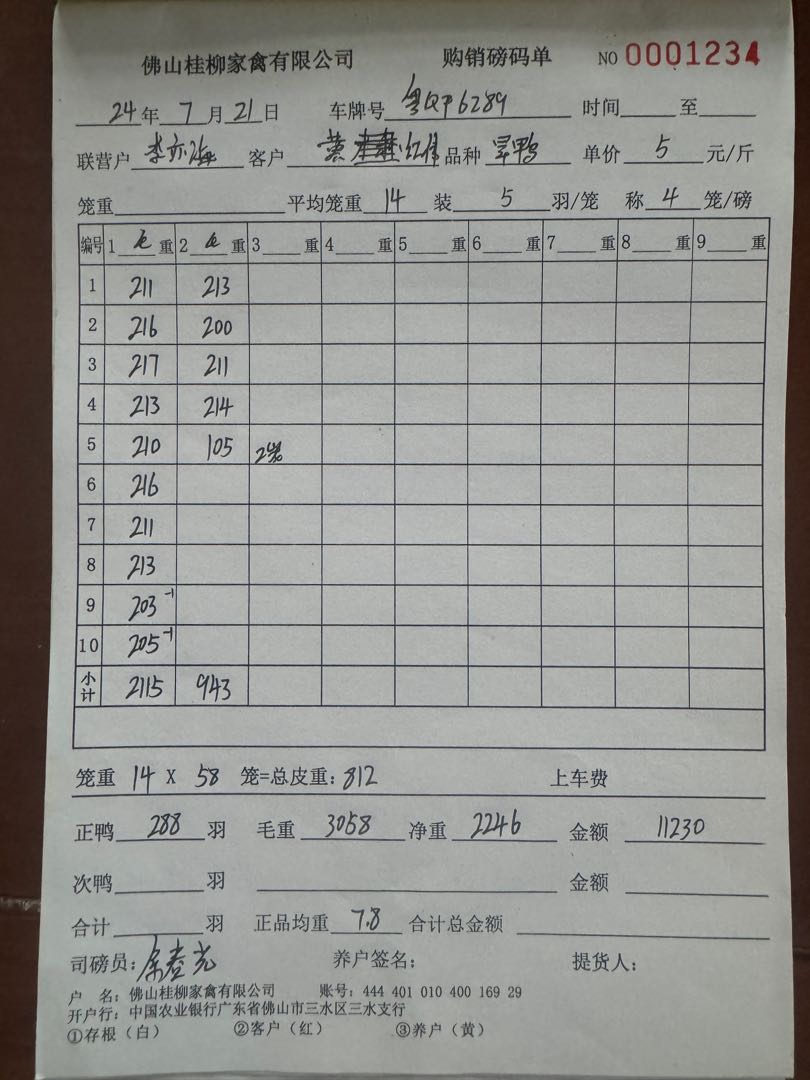 佛山桂柳家禽有限公司 购销磅码单 NO 0001234
24年 7月21日 车牌号 粤QP6289 时间 至
联营户 李亦海 客户 黄 红伟 品种 旱鸭 单价 5 元/斤
笼重 平均笼重 14 装 5 羽/笼 称 4 笼/磅
编号 1 毛 重 2 重 3 重 4 重 5 重 6 重 7 重 8 重 9 重
1 211 213
2 216 200
3 217 211
4 213 214
5 210 105 2笼
6 216
7 211
8 213
9 203 -1
10 205 -1
小计 2115 943
笼重 14 X 58 笼=总皮重: 812 上车费
正鸭 288 羽 毛重 3058 净重 2246 金额 11230
次鸭 羽 金额
合计 羽 正品均重 7.8 合计总金额
司磅员: 养户签名: 提货人:
户 名: 佛山桂柳家禽有限公司 账号: 444 401 010 400 169 29
开户行: 中国农业银行广东省佛山市三水区三水支行
①存根（白） ②客户（红） ③养户（黄）